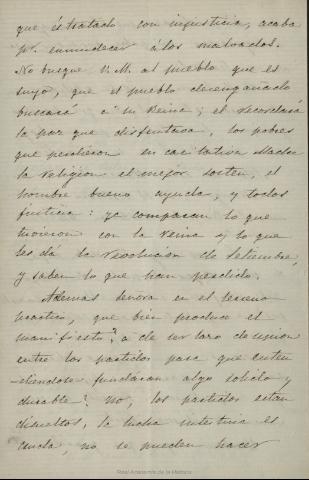 que és tratado con injusticia, acaba
pr. enmudecer á los malvados.
No busque V. M. al pueblo que es
suyo, que el pueblo desengañado
buscará á su Reina; él recordará
la paz que disfrutaba, los pobres
que perdieron su caritativa Madre
la religion el mejor sosten, el
hombre bueno ayuda, y todos
justicia: ya comparan lo que
tuvieron con la Reina y lo que
les dá la revolucion de Setiembre,
y saben lo que han perdido.
Además Señora en el terreno
practico, que bien produce el
manifiesto? á de ser lazo de union
entre los partidos para que enten
-diendose fundaran algo solido y
durable? no, los partidos estan
disueltos, la lucha intestina es
cruda, no se pueden hacer
Real Academia de la Historia